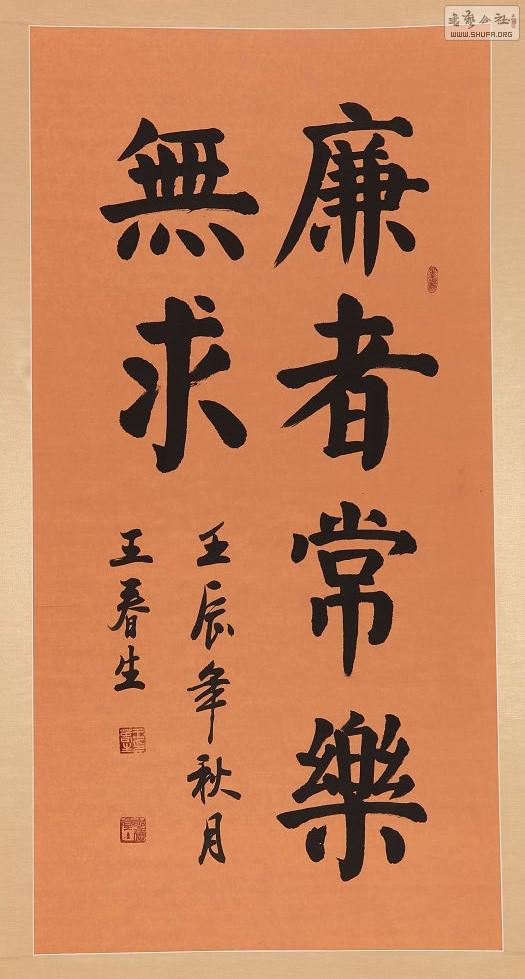 廉者常樂
無求
壬辰年秋月
王春生
书艺公社
WWW.SHUFA.ORG